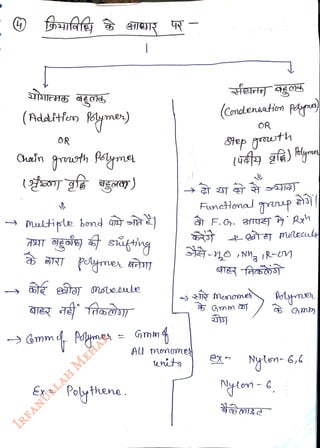 ④ क्रियाविधि के आधार पर -
योगात्मक बहुलक
(Addition Polymer)
OR
Chain growth Polymer
(श्रृंखला वृद्धि बहुलक)
→ Multiple bond पाये जाते हैं।
तथा बहुबंध की shifting
के द्वारा polymer बनेगा
→ कोई छोटा molecule
बाहर नहीं निकलेगा
→ Gmm of Polymer = Gmm of
All monomer
units
Ex = Polythene.
संघनन बहुलक
(Condensation Polymer)
OR
Step growth
(पदीय वृद्धि) Polymer
→ दो या दो से ज्यादा
Functional group होंगे।
ये F.G. आपस में Rxn
करेंगे छोटा molecule
जैसे- H2O, NH3, R-OH
बाहर निकलेंगे
→ सारे Monomer
के Gmm का
योग
> Polymer
के Gmm
Ex - Nylon-6,6
Nylon-6
बैकेलाइट
IRFANULLAH MEHAR